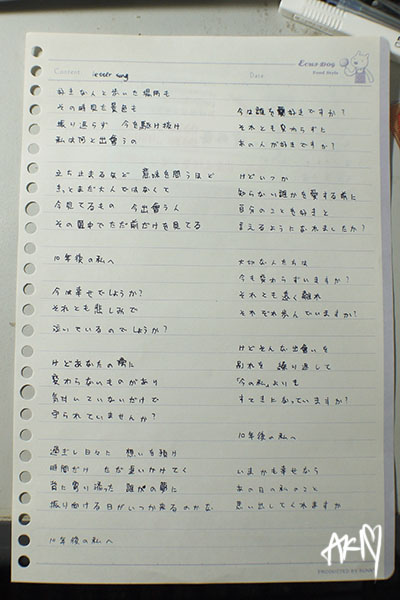 Ecus Dog
Food Style
Content
letter song
Date
好きな人と歩いた場所も
その時見た景色も
振り返らず 今を駆け抜け
私は何と出會うの
立ち止まるほど 意味を問うほど
きっとまだ大人ではなくて
今見てるもの 今出會う人
その中でただ前だけを見てる
10年後の私へ
今は幸せでしょうか?
それとも悲しみで
泣いているのでしょうか?
けどあなたの傍に
変わらないものがあり
気付いていないだけで
守られていませんか?
過ぎし日々に 想いを預け
時間だけ ただ追いかけてく
背に寄り添った 誰かの夢に
振り向ける日がいつか来るのかな
10年後の私へ
今は誰を好きですか?
それとも変わらずに
あの人が好きですか?
けどいつか
知らない誰かを愛する前に
自分のことを好きと
言えるようになれましたか?
大切な人たちは
今も変わらずいますか?
それとも遠く離れ
それぞれ歩んでいますか?
けどそんな出會いを
別れを 繰り返して
「今の私」よりも
すてきになっていますか?
10年後の私へ
いまがも幸せなら
あの日の私のこと
思い出してくれますか
AKM